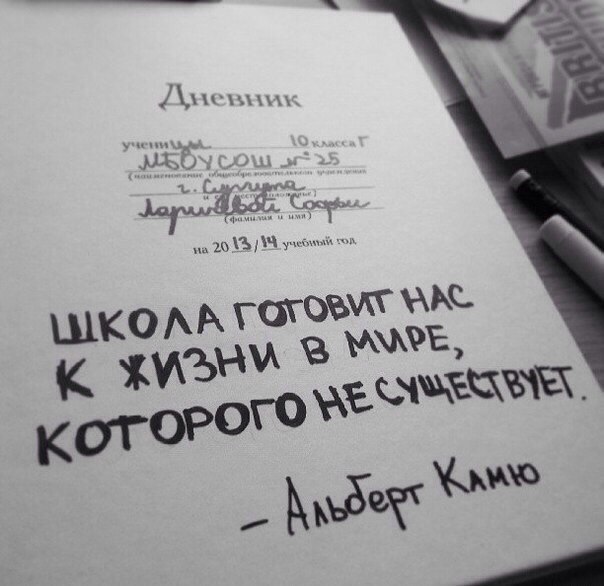 Дневник
ученицы 10 класса Г
МБОУСОШ №25
(наименование общеобразовательного учреждения
г. Сургута
и местоположение)
Софьи
(фамилия и имя)
на 2013/14 учебный год
ШКОЛА ГОТОВИТ НАС
К ЖИЗНИ В МИРЕ,
КОТОРОГО НЕ СУЩЕСТВУЕТ.
– Альберт Камю
BRITISH